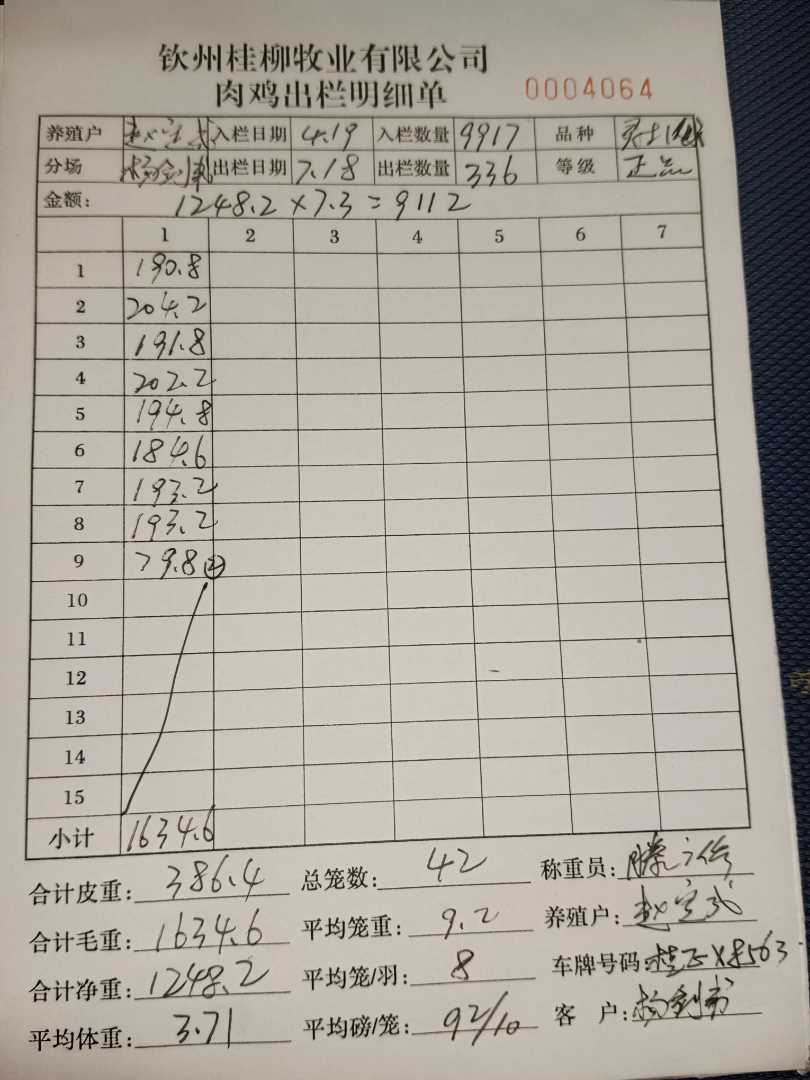 钦州桂柳牧业有限公司
肉鸡出栏明细单 0004064
养殖户 赵宝武 入栏日期 4.19 入栏数量 9917 品种
分场 杨剑 出栏日期 7.18 出栏数量 336 等级 正品
金额: 1248.2×7.3=9112
1 2 3 4 5 6 7
1 190.8
2 204.2
3 191.8
4 202.2
5 194.8
6 184.6
7 193.2
8 193.2
9 79.8 ②
10
11
12
13
14
15
小计 1634.6
合计皮重: 386.4 总笼数: 42 称重员: 滕
合计毛重: 1634.6 平均笼重: 9.2 养殖户: 赵宝武
合计净重: 1248.2 平均笼/羽: 8 车牌号码: 桂 X8563
平均体重: 3.71 平均磅/笼: 92/10 客 户: 杨剑